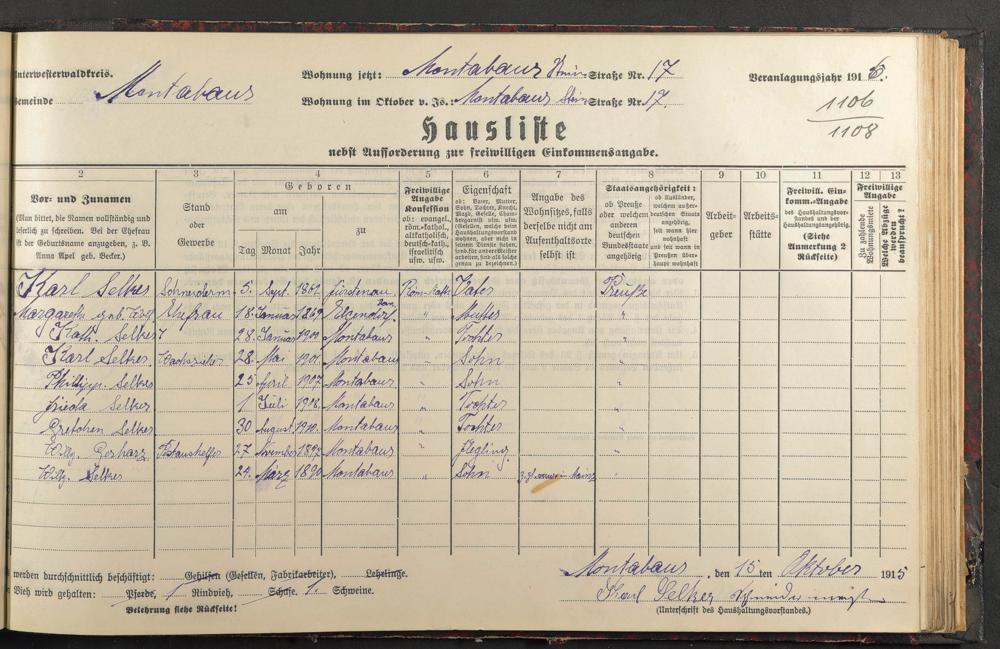 Unterwesterwaldkreis.
Wohnung jetzt: Montabaur Straße Nr. 17
Veranlagungsjahr 1916.
Gemeinde Montabaur
Wohnung im Oktober v. Js.: Montabaur Straße Nr. 17.
1106
1108
Hausliste
nebst Aufforderung zur freiwilligen Einkommensangabe.
2 3 4 5 6 7 8 9 10 11 12 13
Vor- und Zunamen
(Man bittet, die Namen vollständig und
leserlich zu schreiben. Bei der Ehefrau
ist der Geburtsname anzugeben, z. B.
Anna Apel geb. Becker.)
Stand
oder
Gewerbe
Geboren
am
Tag Monat Jahr
zu
Freiwillige
Angabe
Konfession
ob: evangel.,
röm.-kathol.,
altkatholisch,
deutsch-kath.,
israelitisch
usw. usw.
Eigenschaft
ob: Vater, Mutter,
Sohn, Tochter, Knecht,
Magd, Geselle, Cham-
bergarnist usw. usw.
(Gesellen, welche beim
Haushaltungsvorstand
wohnen, aber nicht in
seinem Dienste stehen,
sond. für andere Meister
arbeiten, sind als solche
genau zu bezeichnen.)
Angabe des
Wohnsitzes, falls
derselbe nicht am
Aufenthaltsorte
selbst ist
Staatsangehörigkeit:
ob Preuße
oder welchem
anderen
deutschen
Bundesstaate
angehörig
ob Ausländer,
welchem außer-
deutschen Staate
angehörig,
seit wann hier
wohnhaft und
seit wann in
Preußen über-
haupt wohnhaft
Arbeit-
geber
Arbeits-
stätte
Freiwill. Ein-
komm.-Angabe
des Haushaltungsvor-
standes und der
Haushaltungsangehörig.
(Siehe
Anmerkung 2
Rückseite)
Freiwillige
Angabe
Zu zahlende
Wohnungsmiete
Welche Abzüge
werden
beansprucht?
Karl Selker Schneiderm. 5. Sept. 1862 Fürstenau Röm.-kath. Vater Preuße
Margaretha geb. Ehefrau 18 Januar 1869 Mutter "
Kath. Selker 28. Januar 1900 Montabaur " Tochter "
Karl Selker 28. Mai 1901 Montabaur " Sohn "
Philipp. Selker 25 April 1907 Montabaur " Sohn "
Frieda Selker 1 Juli 1908 Montabaur " Tochter "
Gretchen Selker 30 August 1910 Montabaur " Tochter "
Wilh. Gerharz 27 November Montabaur " "
Wilh. Selker 24. März 1890 Montabaur " Sohn Mainz "
werden durchschnittlich beschäftigt: Gehilfen (Gesellen, Fabrikarbeiter), Lehrlinge.
Vieh wird gehalten: Pferde, 1 Rindvieh, Schafe, 1. Schweine.
Belehrung siehe Rückseite!
Montabaur, den 15ten Oktober 1915
Karl Selker
(Unterschrift des Haushaltungsvorstandes.)